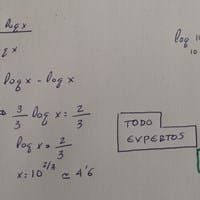 log x
g x
log x - log x
3/3 log x = 2/3
log x = 2/3
x = 10^2/3 ≃ 4'6
log 10
10
TODO
EXPERTOS